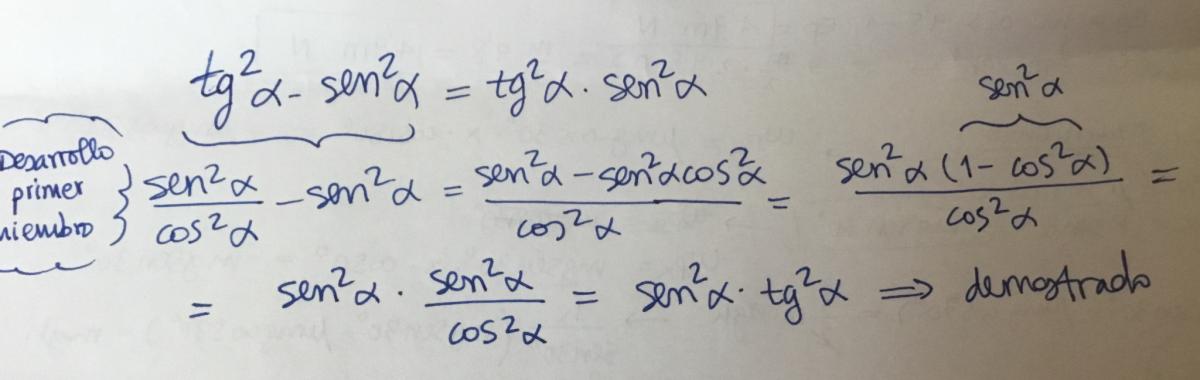 tg²α - sen²α = tg²α · sen²α
sen²α
Desarrollo
primer
miembro
sen²α/cos²α - sen²α = (sen²α - sen²α cos²α)/cos²α = sen²α (1 - cos²α)/cos²α =
= sen²α · sen²α/cos²α = sen²α · tg²α ⟹ demostrado